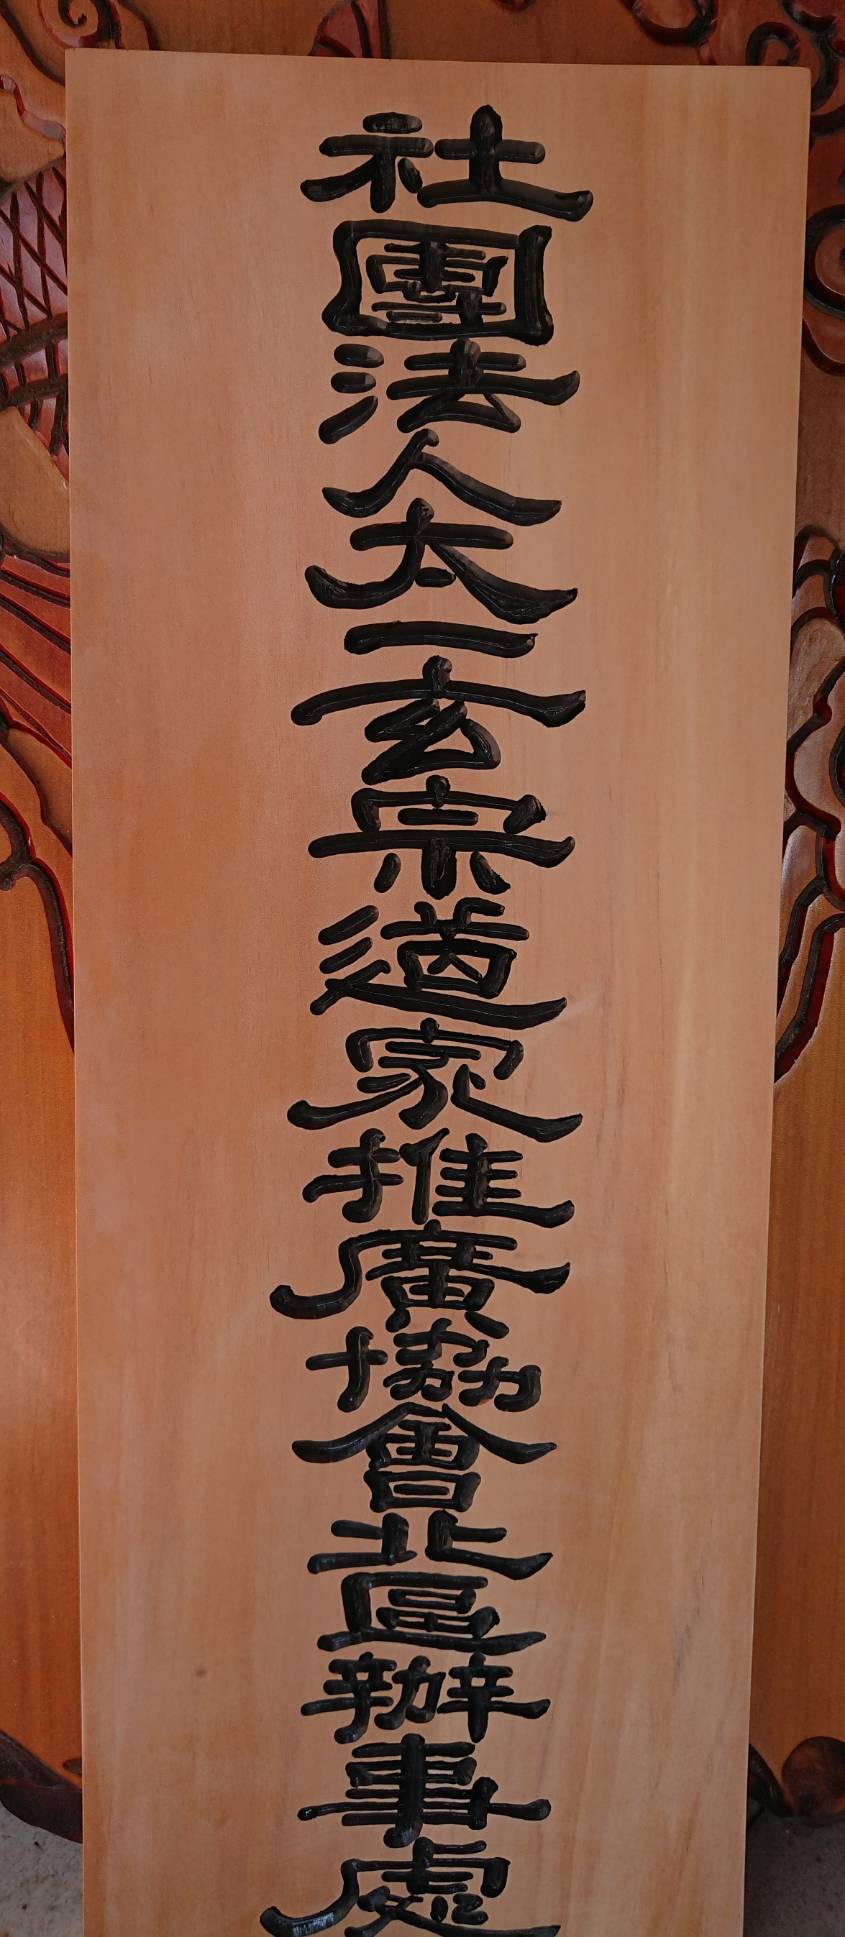 社團法人太一玄宗道家推廣協會北區辦事處